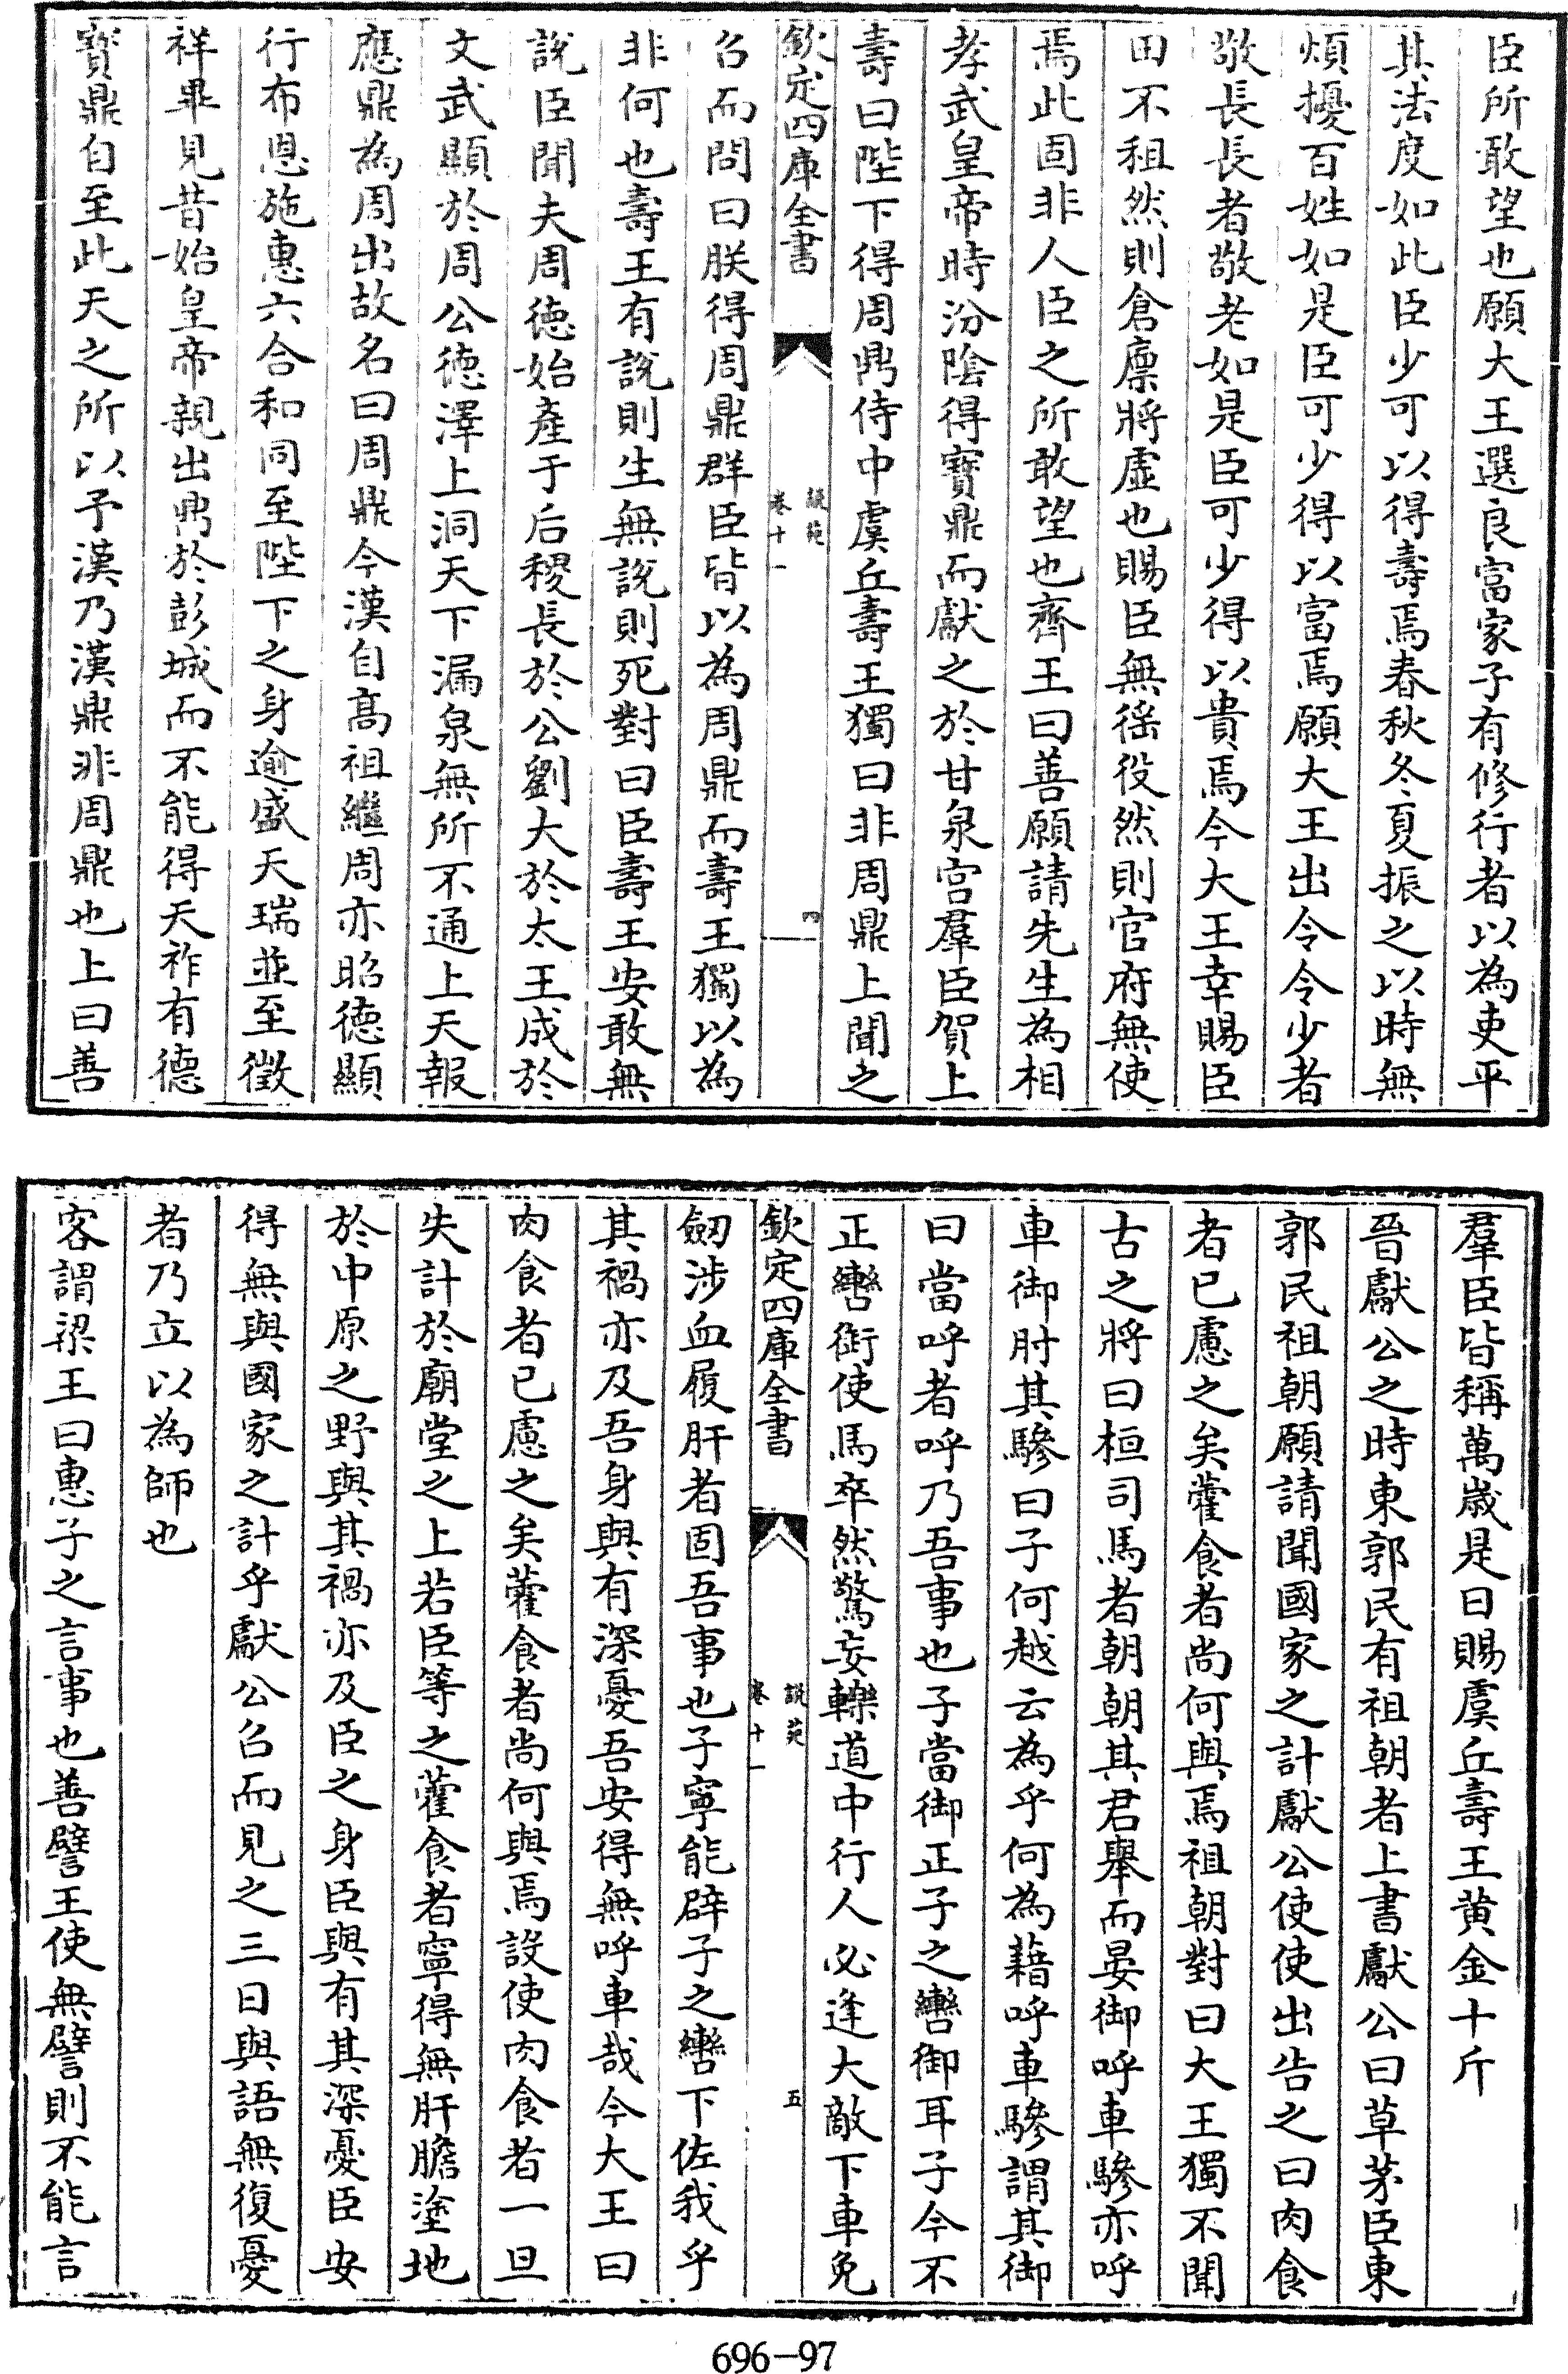 臣所敢望也願大王選良富家子有修行者以為吏平
其法度如此臣少可以得壽焉春秋冬夏振之以時無
煩擾百姓如是臣可少得以富焉願大王出令令少者
敬長長者敬老如是臣可少得以貴焉今大王幸賜臣
田不租然則倉廪將虚也賜臣無徭役然則官府無使
焉此固非人臣之所敢望也齊王曰善願請先生為相
孝武皇帝時汾陰得寳鼎而獻之於甘泉宫羣臣賀上
壽曰陛下得周鼎侍中虞丘壽王獨曰非周鼎上聞之
欽定四庫全書
說苑
卷十一
四
召而問曰朕得周鼎群臣皆以為周鼎而壽王獨以為
非何也壽王有說則生無說則死對曰臣壽王安敢無
說臣聞夫周徳始產于后稷長於公劉大於太王成於
文武顯於周公徳澤上洞天下漏泉無所不通上天報
應鼎為周出故名曰周鼎今漢自高祖繼周亦昭徳顯
行布恩施惠六合和同至陛下之身逾盛天瑞並至徵
祥畢見昔始皇帝親出鼎於彭城而不能得天祚有德
寳鼎自至此天之所以予漢乃漢鼎非周鼎也上曰善
羣臣皆稱萬歲是日賜虞丘壽王黄金十斤
晉獻公之時東郭民有祖朝者上書獻公曰草茅臣東
郭民祖朝願請聞國家之計獻公使使出告之曰肉食
者已慮之矣藿食者尚何與焉祖朝對曰大王獨不聞
古之將曰桓司馬者朝朝其君舉而晏御呼車驂亦呼
車御肘其驂曰子何越云為乎何為藉呼車驂謂其御
曰當呼者呼乃吾事也子當御正子之轡御耳子今不
正轡銜使馬卒然驚妄轢道中行人必逢大敵下車免
欽定四庫全書
說苑
卷十一
五
劒涉血履肝者固吾事也子寧能辟子之轡下佐我乎
其禍亦及吾身與有深憂吾安得無呼車哉今大王曰
肉食者已慮之矣藿食者尚何與焉設使肉食者一旦
失計於廟堂之上若臣等之藿食者寧得無肝膽塗地
於中原之野與其禍亦及臣之身臣與有其深憂臣安
得無與國家之計乎獻公召而見之三日與語無復憂
者乃立以為師也
客謂梁王曰惠子之言事也善譬王使無譬則不能言
696-97